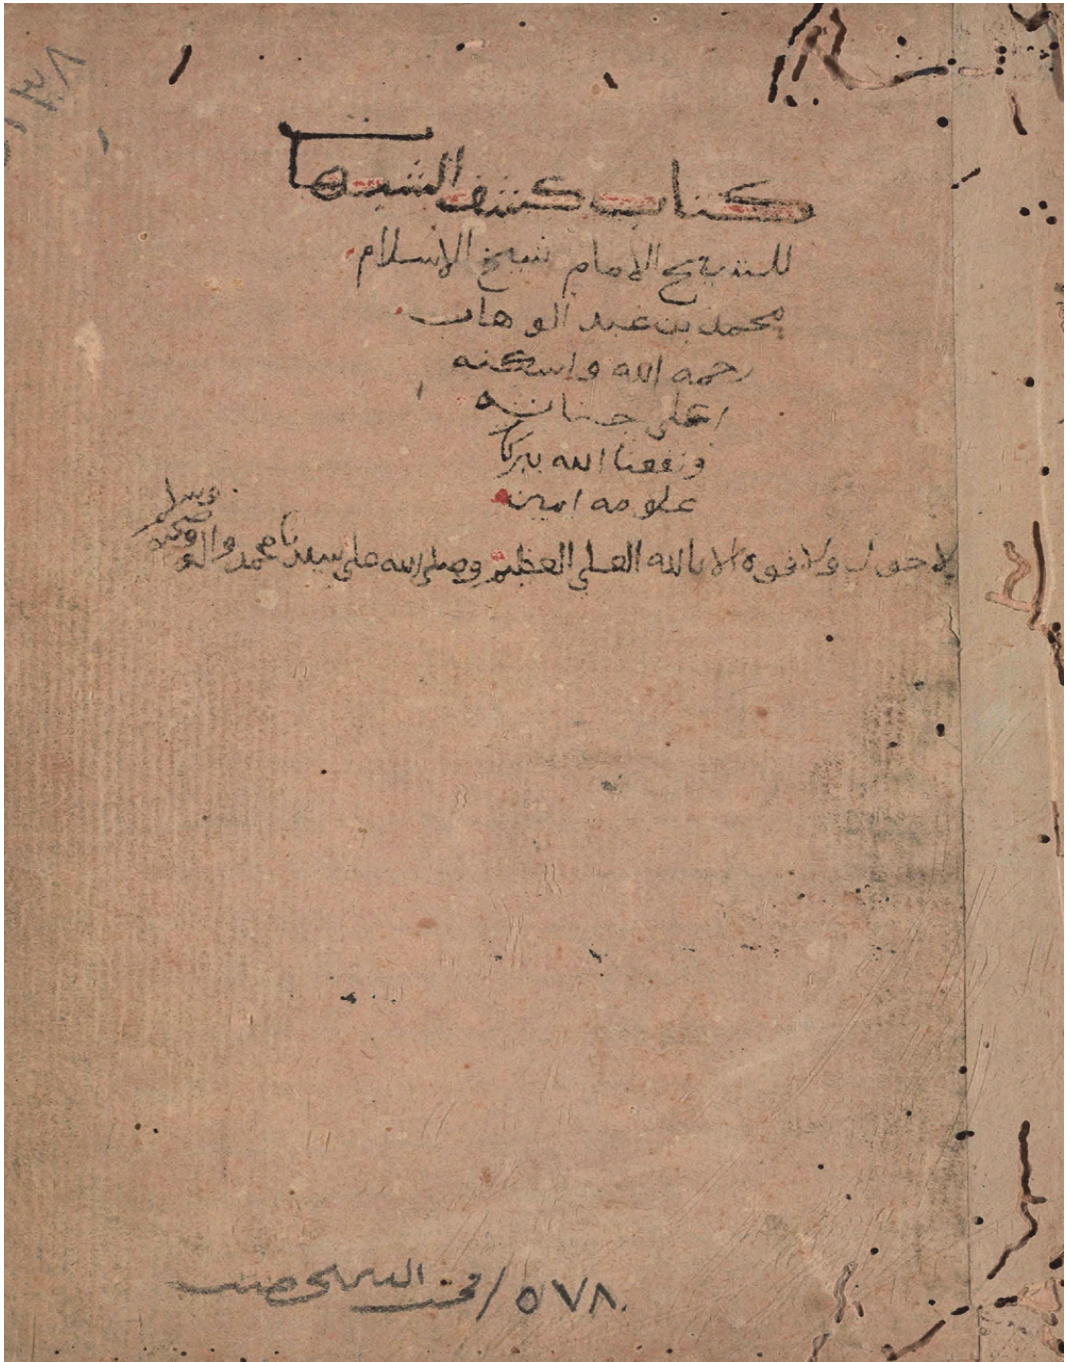 كتاب كشف الشبهات
للشيخ الامام شيخ الاسلام
محمد بن عبد الوهاب
رحمه الله واسكنه
اعلى جنانه
ونفعنا الله ببركا
علومه امين
لا حول ولا قوه الا بالله العلي العظيم وصلى الله على سيدنا محمد واله وصحبه وسلم
٥٧٨